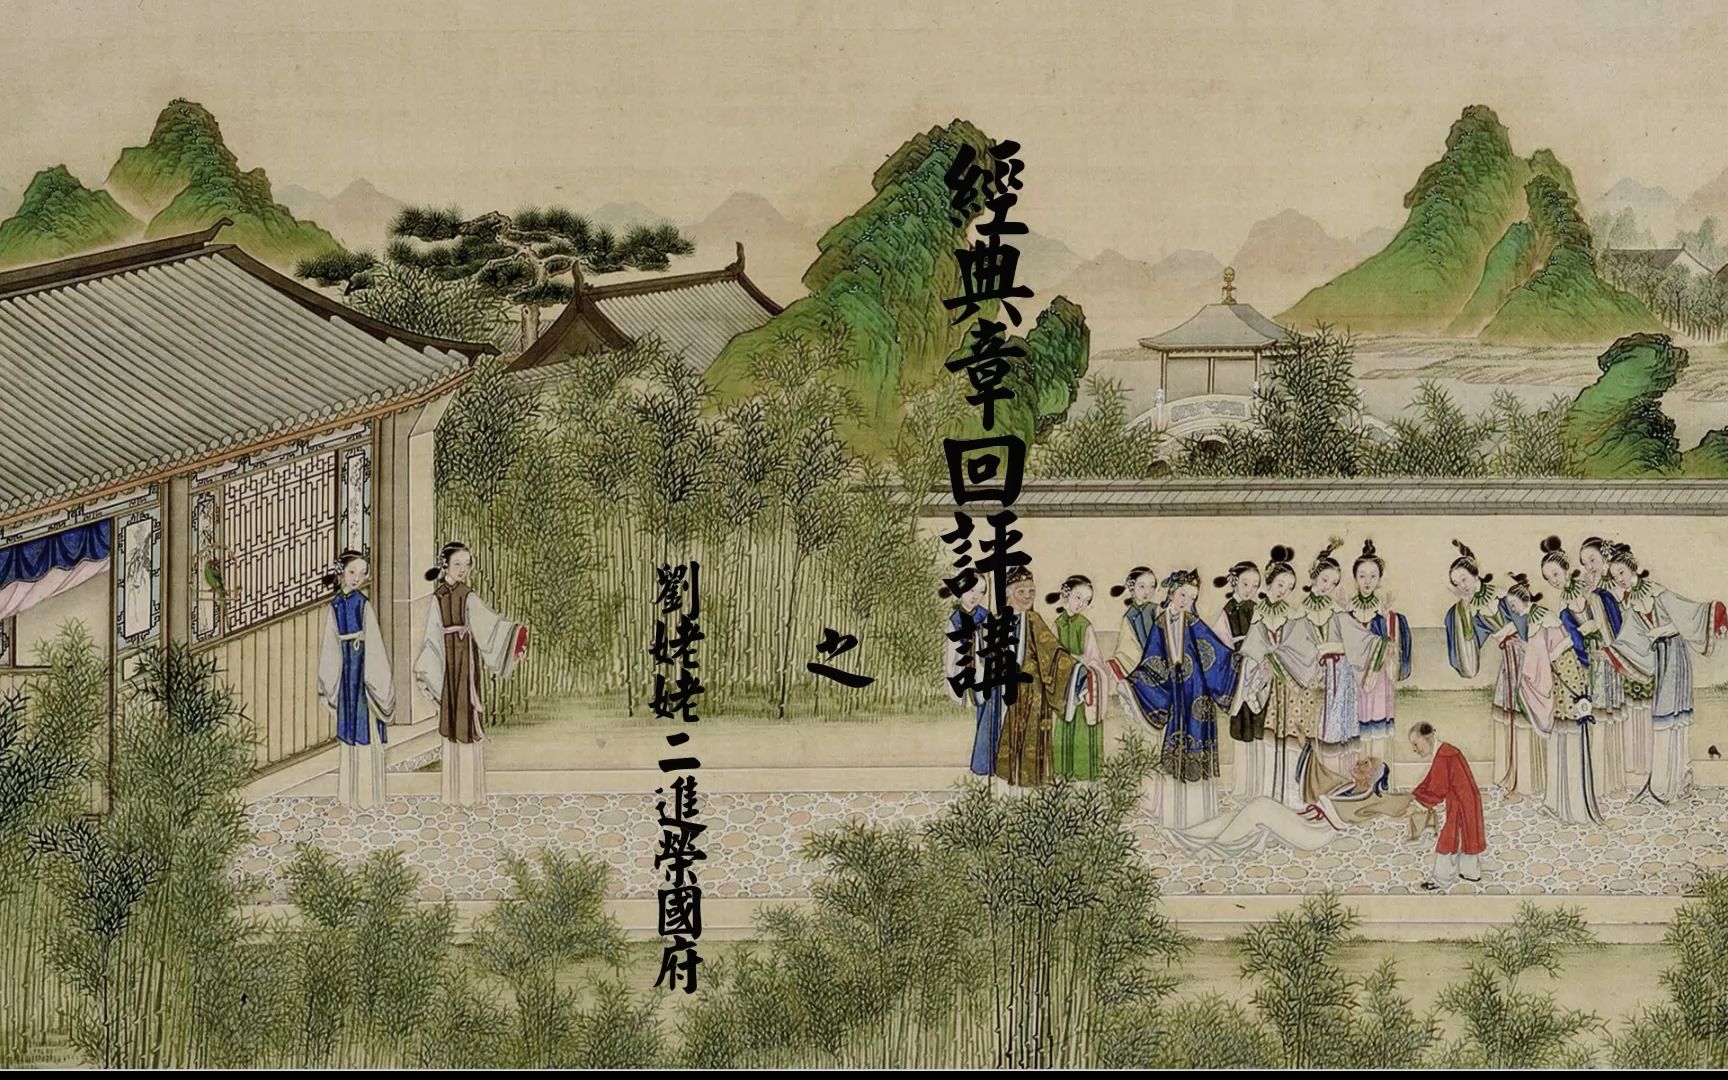 經典章回評講
之
劉姥姥二進榮國府